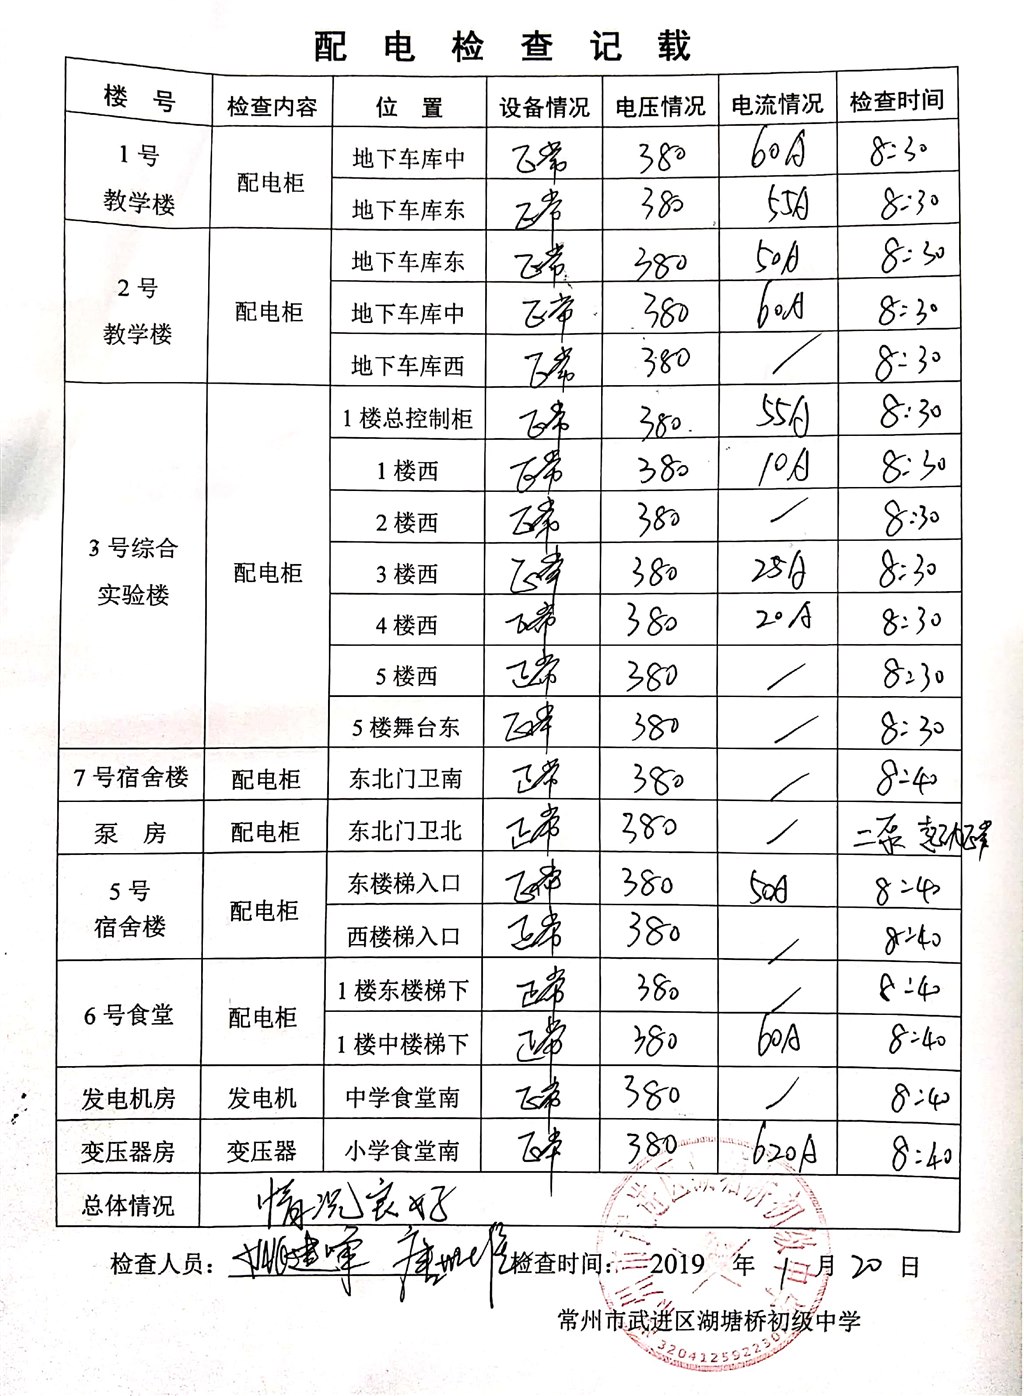 配电检查记载
楼号 检查内容 位置 设备情况 电压情况 电流情况 检查时间
1号教学楼 配电柜 地下车库中 正常 380 60A 8:30
地下车库东 正常 380 55A 8:30
2号教学楼 配电柜 地下车库东 正常 380 50A 8:30
地下车库中 正常 380 60A 8:30
地下车库西 正常 380 / 8:30
3号综合实验楼 配电柜 1楼总控制柜 正常 380 55A 8:30
1楼西 正常 380 10A 8:30
2楼西 正常 380 / 8:30
3楼西 正常 380 25A 8:30
4楼西 正常 380 20A 8:30
5楼西 正常 380 / 8:30
5楼舞台东 正常 380 / 8:30
7号宿舍楼 配电柜 东北门卫南 正常 380 / 8:40
泵房 配电柜 东北门卫北 正常 380 / 二泵 正常
5号宿舍楼 配电柜 东楼梯入口 正常 380 50A 8:40
西楼梯入口 正常 380 / 8:40
6号食堂 配电柜 1楼东楼梯下 正常 380 / 8:40
1楼中楼梯下 正常 380 60A 8:40
发电机房 发电机 中学食堂南 正常 380 / 8:40
变压器房 变压器 小学食堂南 正常 380 620A 8:40
总体情况 情况良好
检查人员: 检查时间: 2019 年 1 月 20 日
常州市武进区湖塘桥初级中学